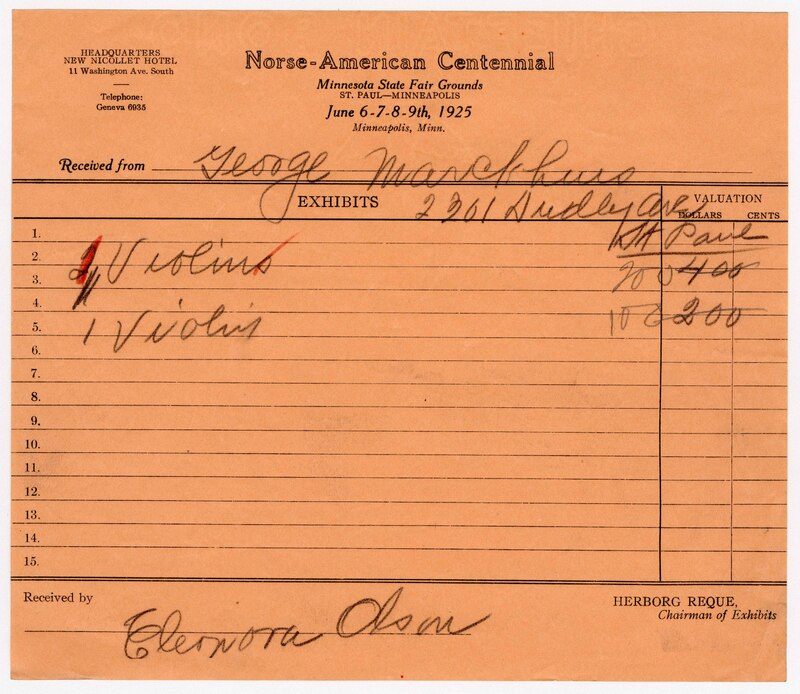 HEADQUARTERS
NEW NICOLLET HOTEL
11 Washington Ave. South
Telephone:
Geneva 6935
Norse-American Centennial
Minnesota State Fair Grounds
ST. PAUL—MINNEAPOLIS
June 6-7-8-9th, 1925
Minneapolis, Minn.
Received from George Markhus
EXHIBITS 2301 Dudley Ave VALUATION
DOLLARS CENTS
1. St Paul
2. Violins
3. 200 400
4.
5. 1 Violin 100 200
6.
7.
8.
9.
10.
11.
12.
13.
14.
15.
Received by Eleonora Olson
HERBORG REQUE,
Chairman of Exhibits